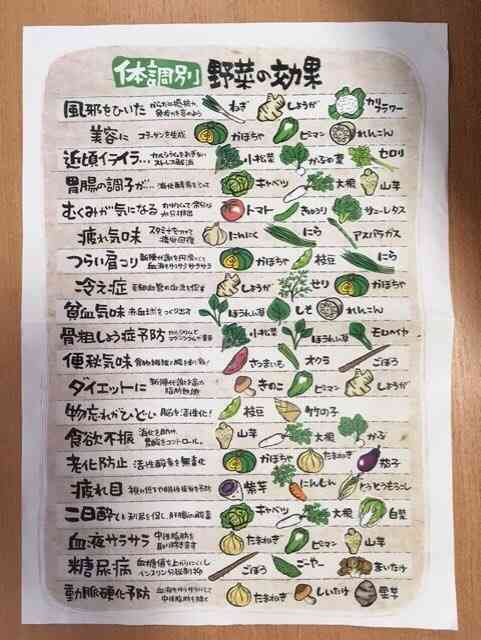 体調別 野菜の効果
風邪をひいた からだの抵抗力、発汗力を高めよう ねぎ しょうが カリフラワー
美容に コラーゲンを生成 かぼちゃ ピーマン れんこん
近頃イライラ… カルシウムをおぎない ストレス解消 小松菜 かぶの葉 セロリ
胃腸の調子が… 消化酵素をとって キャベツ 大根 山芋
むくみが気になる カリウムで余分な水分排出 トマト きゅうり サニーレタス
疲れ気味 スタミナをつけて疲労回復 にんにく にら アスパラガス
つらい肩コリ 新陳代謝を円滑にして血液をサラサラ かぼちゃ 枝豆 にら
冷え症 毛細血管の血流を促す しょうが せり かぼちゃ
貧血気味 赤血球をつくり出す ほうれん草 しそ れんこん
骨粗しょう症予防 カルシウムで 小松菜 ほうれん草 モロヘイヤ
便秘気味 食物繊維で腸を刺激! さつまいも オクラ ごぼう
ダイエットに 新陳代謝を高め脂肪燃焼 きのこ ピーマン しょうが
物忘れがひどい 脳を活性化! 枝豆 竹の子
食欲不振 消化を助け、胃酸をコントロール。 山芋 大根 かぶ
老化防止 活性酸素を無毒化 かぼちゃ たまねぎ 茄子
疲れ目 紫芋 にんじん とうもろこし
二日酔い 利尿を促し、肝臓の解毒 キャベツ 大根 白菜
血液サラサラ 中性脂肪を取り除きます たまねぎ ピーマン 山芋
糖尿病 血糖値を上がりにくくし インスリン分泌抑制 ごぼう ゴーヤー まいたけ
動脈硬化予防 血液をサラサラにして中性脂肪を除く たまねぎ しいたけ 里芋